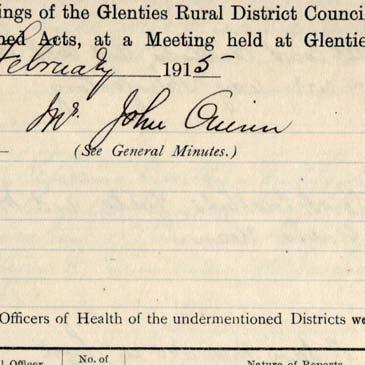 ings of the Glenties Rural District Counci
ned Acts, at a Meeting held at Glentie
February 1915
Mr. John Quinn
(See General Minutes.)
Officers of Health of the undermentioned Districts we
l Officer
No. of
Nature of Reports